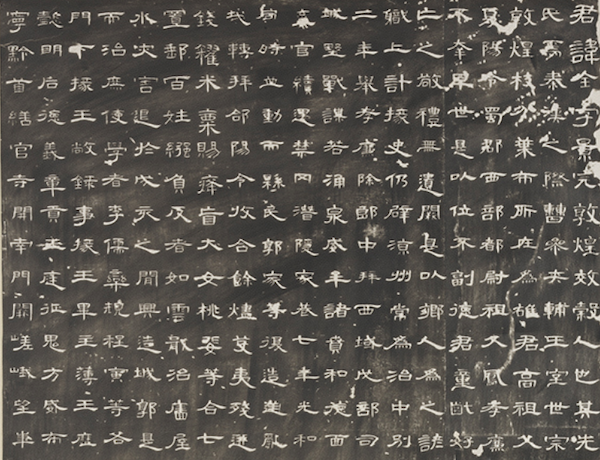 君諱全字景完敦煌效穀人也其先
氏焉秦漢之際曹參夾輔王室世宗
敦煌枝分葉布所在為雄君高祖父
夏陽令蜀郡西部都尉祖父鳳孝廉
不幸早世是以位不副德君童齔好
亡之敬禮無遺闕是以鄉人為之諺
職上計掾史仍辟涼州常為治中別
二年舉孝廉除郎中拜西域戊部司
城野戰謀若涌泉威牟諸賁和德面
棄官續遇禁冈潛隱家巷七年光和
當時並動而縣民郭家等復造逆亂
哉轉拜郃陽令收合餘燼芟夷殘迸
錢糴米粟賜癃盲大女桃婓等合七
置郵百姓繦負反者如雲戢治廧屋
水灾害退於戌亥之間興造城郭是
而治庶使學者李儒欒規程寅等各
門下掾王敞錄事掾王畢主薄王歷
懿明后德義章貢王庭征鬼方威布
寧黔首繕官寺開南門闕嵯峨望華